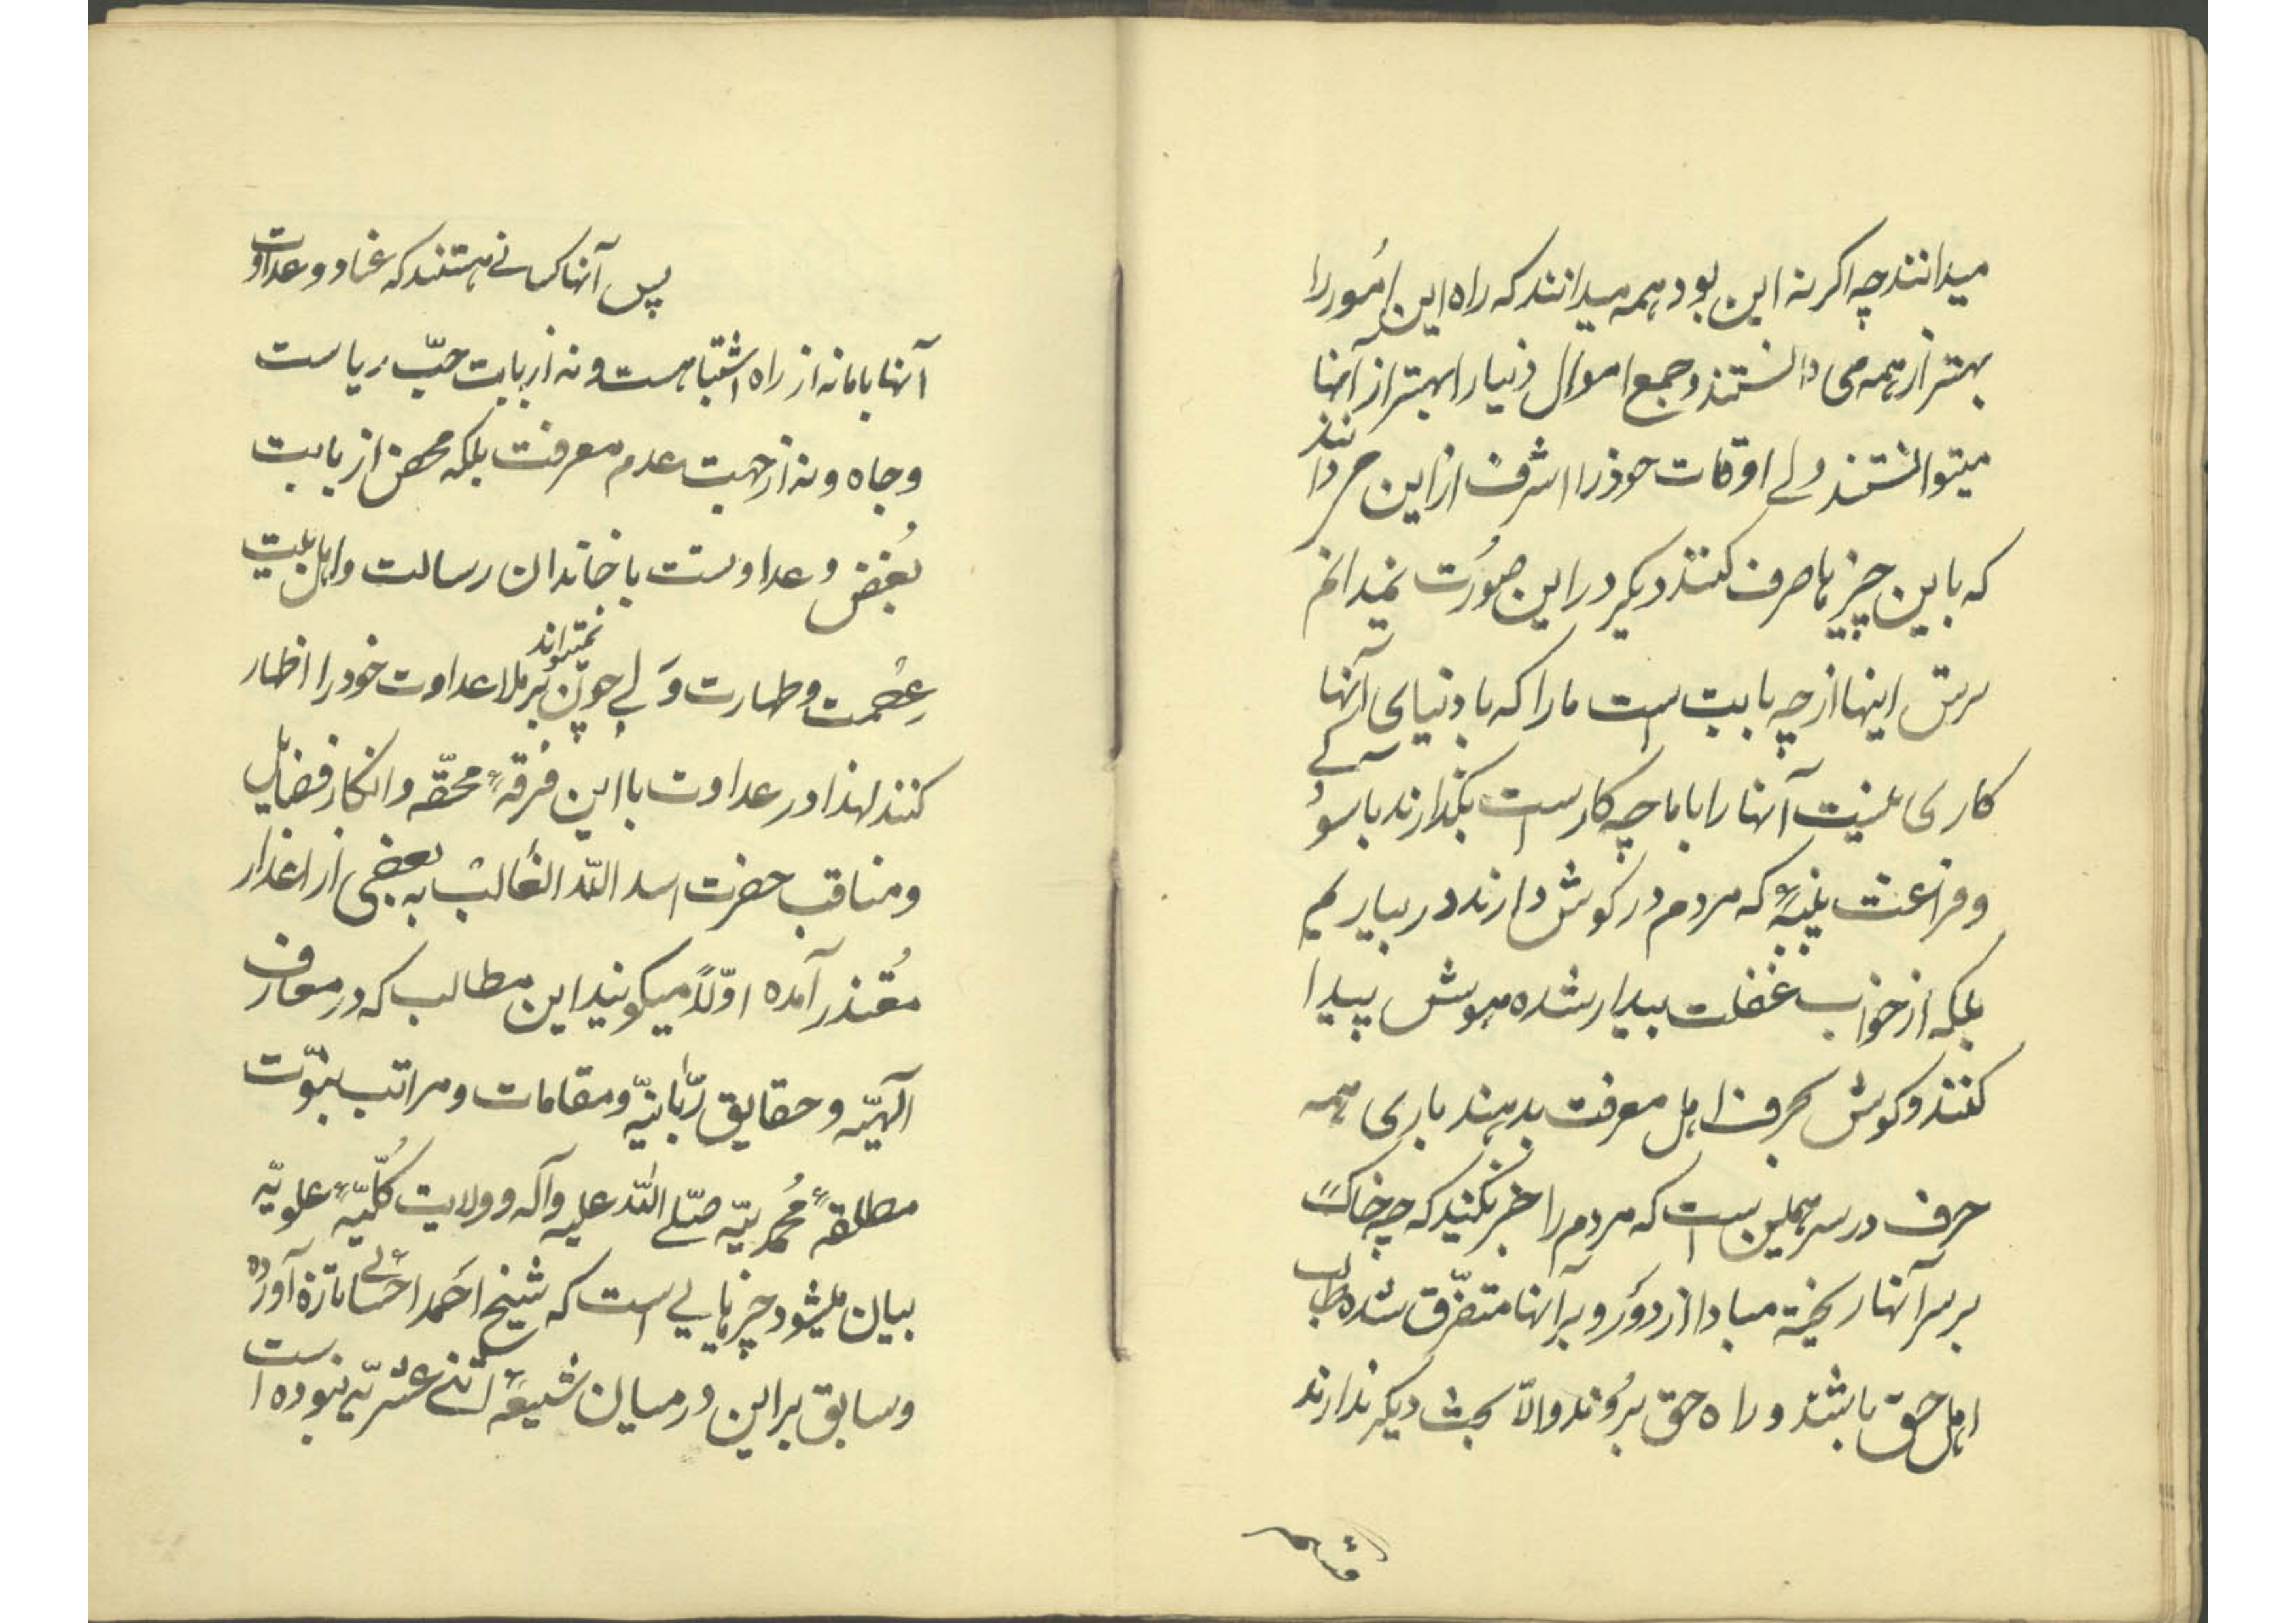 میدانند چه اکر نه این بود همه میدانند که راه این امُور را
بهتر از همه می دانستند و جمع اموال دنیا را بهتر از آنها
میتوانستند ولے اوقات خود را اشرف از این میدانند
که باین چیزها صرف کنند دیکر در این صُورت نمیدانم
سرّش اینها از چه بابت است ما را که با دنیای آنها
کاری نیست آنها را با ما چه کار است بکذارند باسُودکے
و فراغت پنبهٔ که مردم در کوش دارند در بیاریم
بلکه از خواب غفلت بیدار شده هوش پیدا
کنند و کوش بحرف اهل معرفت بدهند باری همه
حرف در سر همین است که مردم را خبر نکنید که چه خاک
بر سر آنها ریخته مبادا از دَور و بر آنها متفرّق شده طالب
اهل حق باشند و راه حق برَوند والّا بحث دیکر ندارند
قسم
پس آنها کسانے هستند که عناد و عداوت
آنها با ما نه از راه اشتباهست و نه از بابت حبّ ریاست
و جاه و نه از جهت عدم معرفت بلکه محض از بابت
بُغض و عداوتست با خاندان رسالت و اهل بیت
عِصْمت و طهارت وَلے چون نمیتوانند بَر ملا عداوت خود را اظهار
کنند لهذا در عداوت با این فُرقهٔ محقّه و انکار فضایل
و مناقب حضرت اسد اللّه الغالب به بعضی از اعذار
مُعْتذر آمده اوّلاً میکویند این مطالب که در معارف
الهیّه و حقایق ربّانیّه و مقامات و مراتب نبوّت
مطلقهٔ مُحمدیّه صلّے اللّه علیه و آله و ولایت کُلّیّهٔ علویّه
بیان میشود چیزهایی است که شیخ احَمد احسائے تازه آورده
و سابق بر این در میان شیعهٔ اثنے عشریّه نبوده است